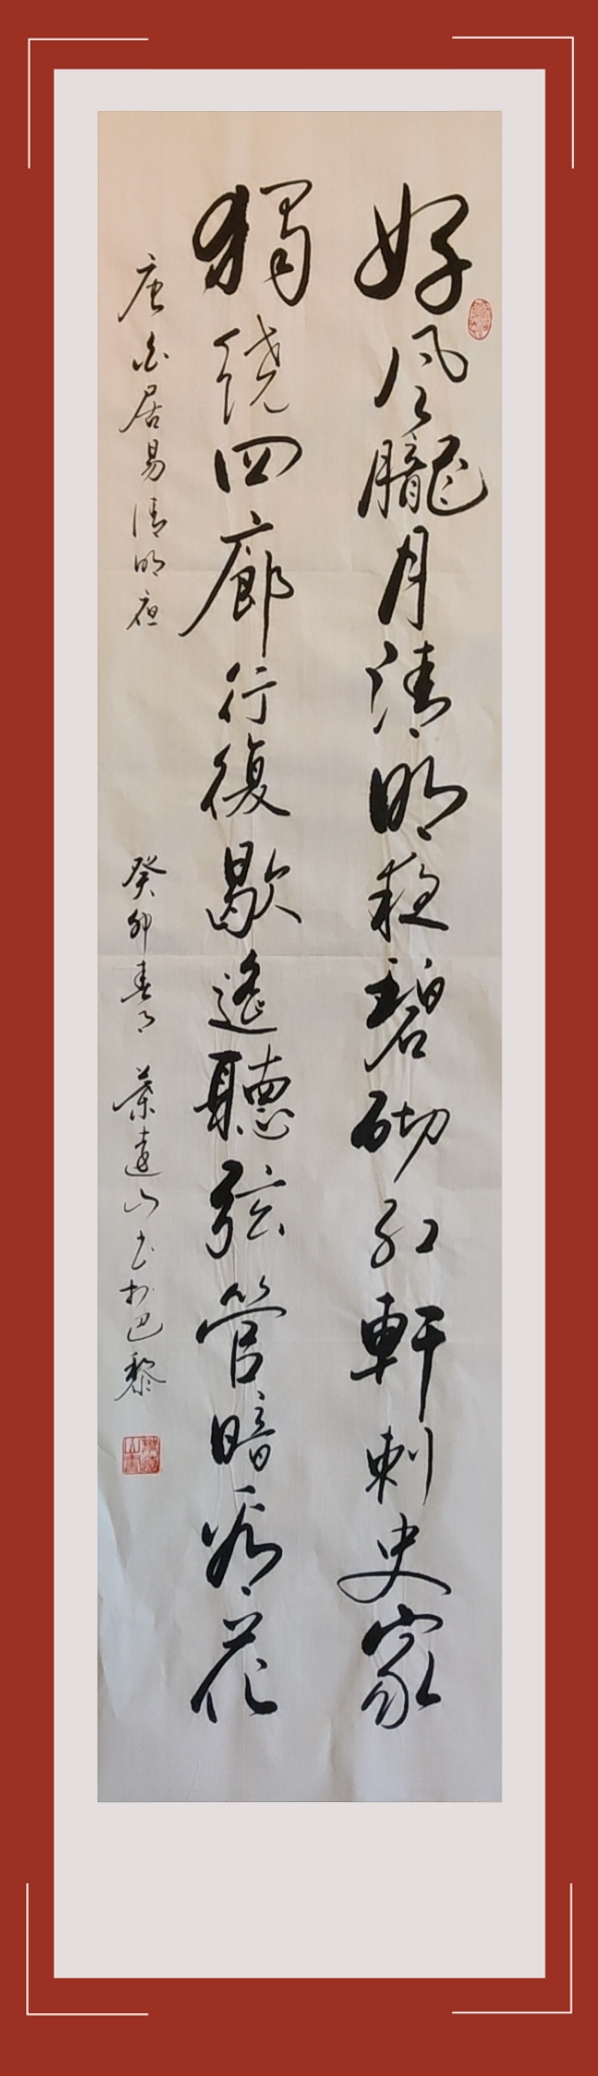 好風朧月清明夜碧砌紅軒刺史家
獨繞回廊行復歇遙聽弦管暗看花
唐白居易清明夜 癸卯春月 葉山书於巴黎